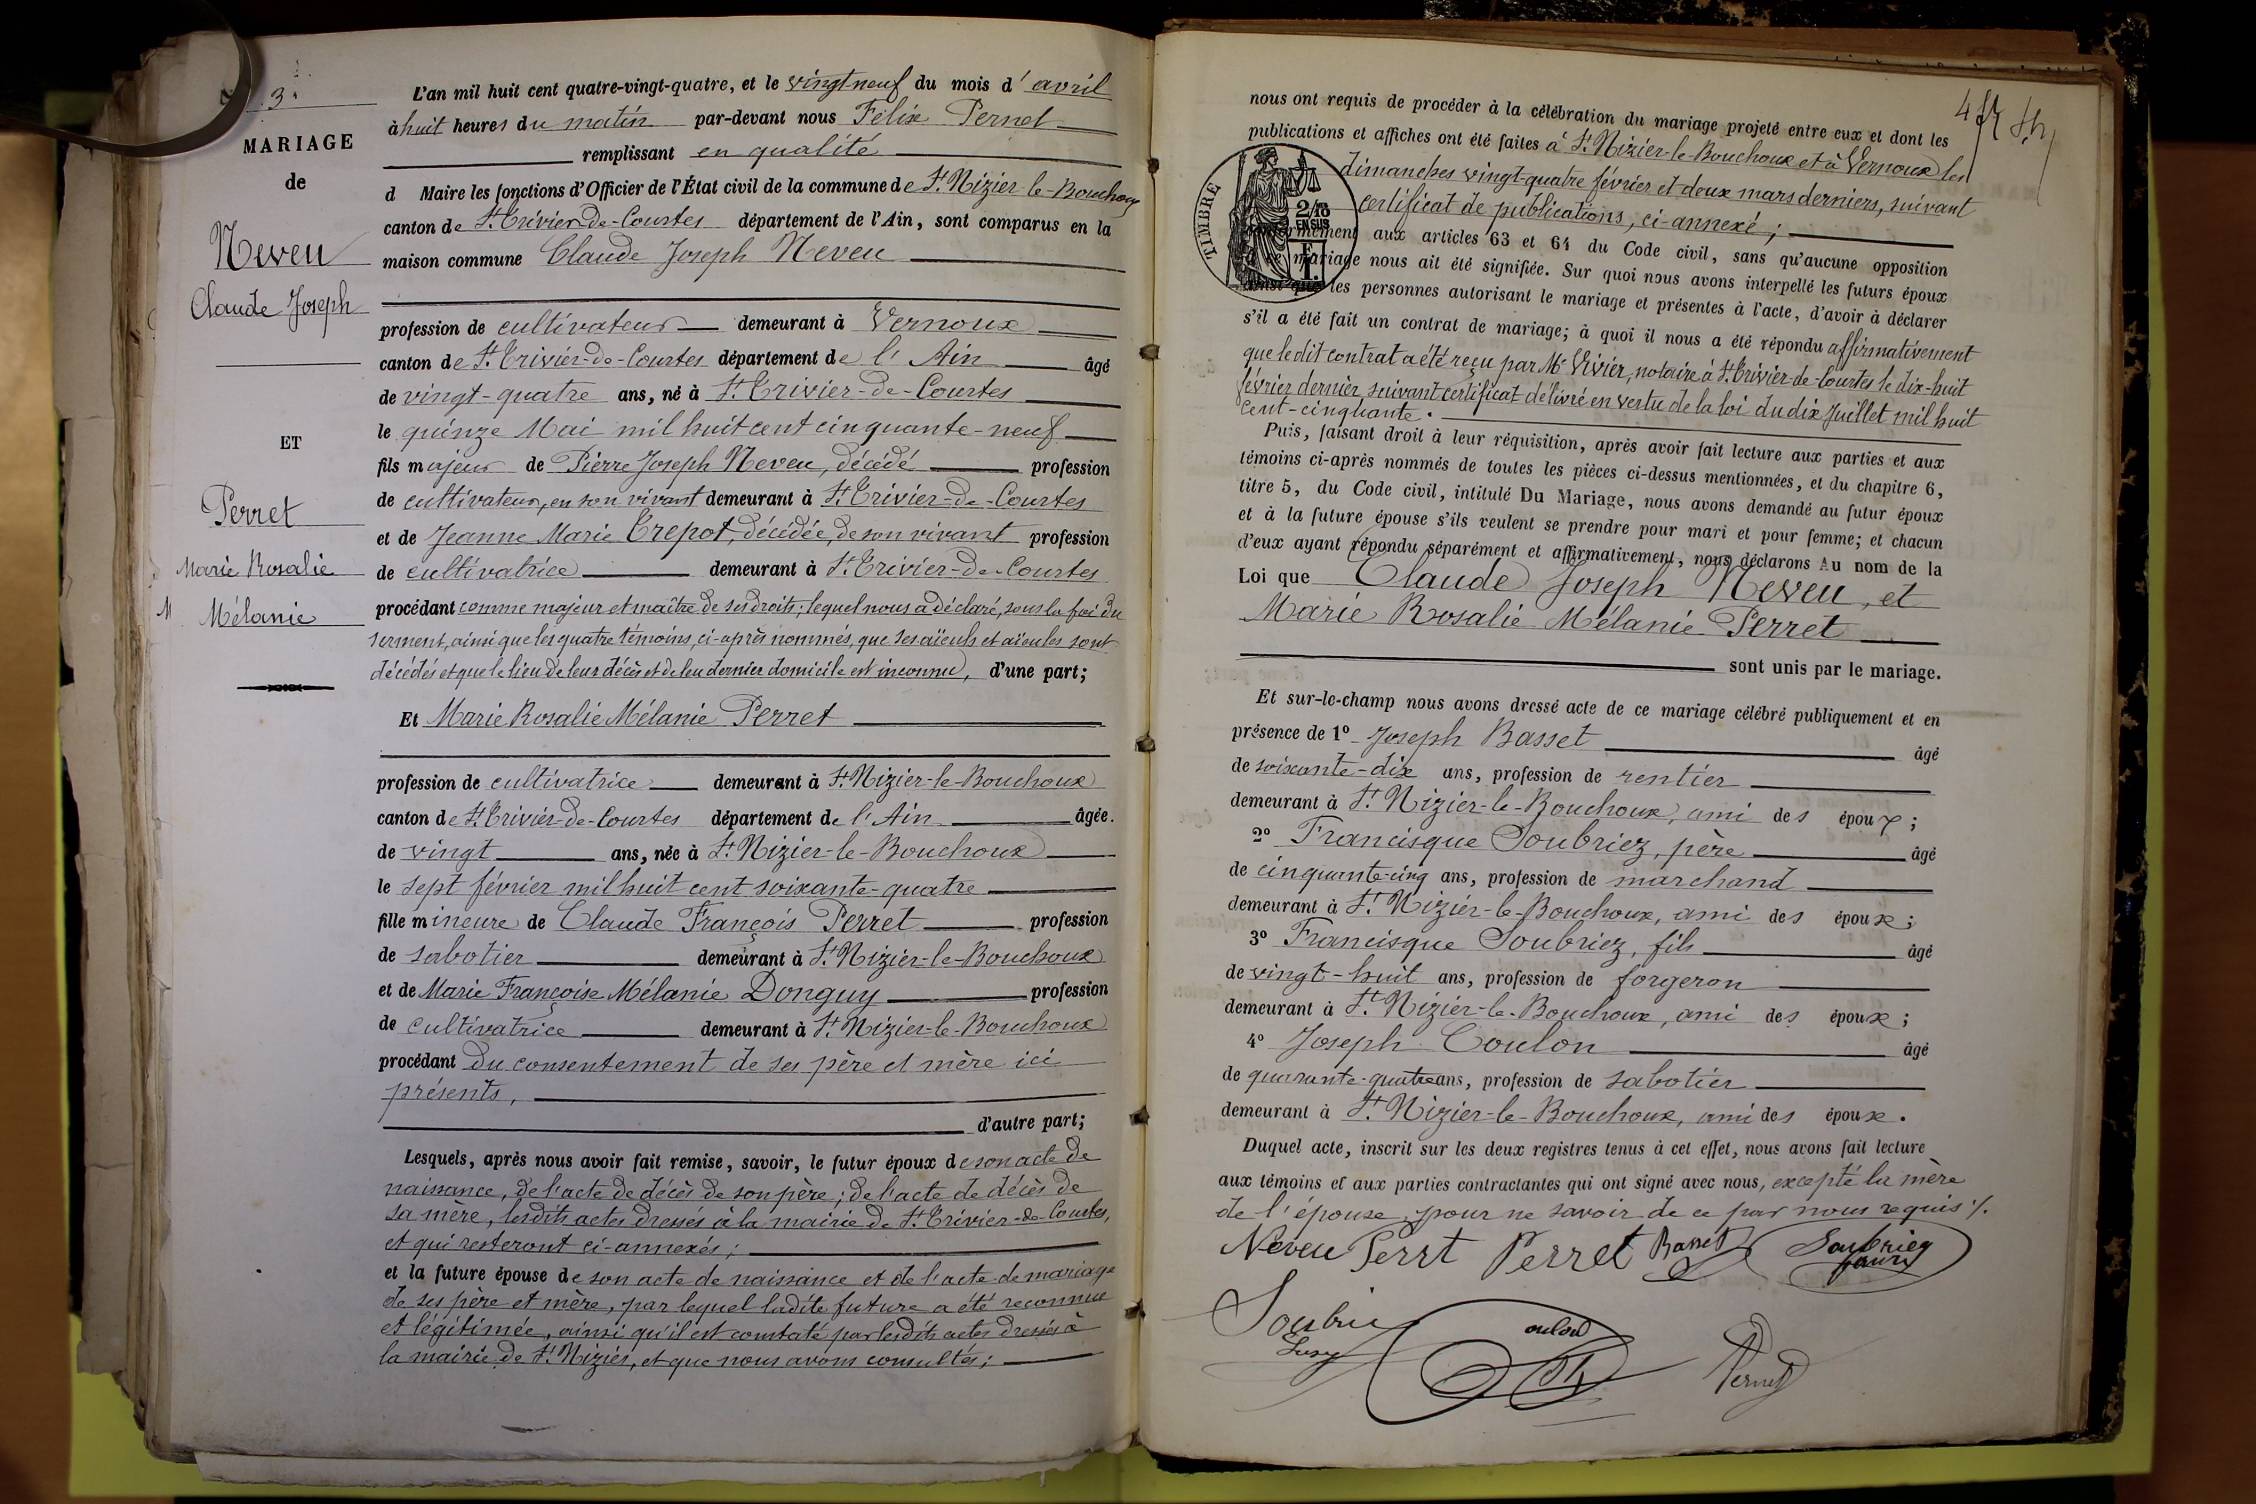 3.
MARIAGE
de
Neveu
Claude Joseph
ET
Perret
Marie Rosalie
M Mélanie
L'an mil huit cent quatre-vingt-quatre, et le vingt-neuf du mois d'avril
à huit heures du matin par-devant nous Félix Pernet
remplissant en qualité
d Maire les fonctions d'Officier de l'État civil de la commune de St Nizier-le-Bouchoux
canton de St Trivier-de-Courtes département de l'Ain, sont comparus en la
maison commune Claude Joseph Neveu
profession de cultivateur demeurant à Vernoux
canton de St Trivier-de-Courtes département de l'Ain âgé
de vingt-quatre ans, né à St Trivier-de-Courtes
le quinze Mai mil huit cent cinquante-neuf
fils majeur de Pierre Joseph Neveu, décédé profession
de cultivateur, en son vivant demeurant à St Trivier-de-Courtes
et de Jeanne Marie Trepot, décédée, de son vivant profession
de cultivatrice demeurant à St Trivier-de-Courtes
procédant comme majeur et maître de ses droits; lequel nous a déclaré, sous la foi du
serment, ainsi que les quatre témoins, ci-après nommés, que ses aïeuls et aïeules sont
décédés et que le lieu de leur décès et de leu dernier domicile est inconnu, d'une part;
Et Marie Rosalie Mélanie Perret
profession de cultivatrice demeurant à St Nizier-le-Bouchoux
canton de St Trivier-de-Courtes département de l'Ain âgée.
de vingt ans, née à St Nizier-le-Bouchoux
le sept février mil huit cent soixante-quatre
fille mineure de Claude François Perret profession
de sabotier demeurant à St Nizier-le-Bouchoux
et de Marie Françoise Mélanie Donguy profession
de cultivatrice demeurant à St Nizier-le-Bouchoux
procédant du consentement de ses père et mère ici
présents,
d'autre part;
Lesquels, après nous avoir fait remise, savoir, le futur époux de son acte de
naissance, de l'acte de décès de son père; de l'acte de décès de
sa mère, lesdits actes dressés à la mairie de St Trivier-de-Courtes,
et qui resteront ci-annexés;
et la future épouse de son acte de naissance et de l'acte de mariage
de ses père et mère, par lequel ladite future a été reconnue
et légitimée, ainsi qu'il est constaté par lesdits actes dressés à
la mairie de St Nizier, et que nous avons consultés;
nous ont requis de procéder à la célébration du mariage projeté entre eux et dont les
publications et affiches ont été faites à St Nizier-le-Bouchoux et à Vernoux les
dimanches vingt-quatre février et deux mars derniers, suivant
certificat de publications, ci-annexé;
TIMBRE
2/10
EN SUS
aux articles 63 et 64 du Code civil, sans qu'aucune opposition
mariage nous ait été signifiée. Sur quoi nous avons interpellé les futurs époux
ainsi que les personnes autorisant le mariage et présentes à l'acte, d'avoir à déclarer
s'il a été fait un contrat de mariage; à quoi il nous a été répondu affirmativement
que le dit contrat a été reçu par Me Vivier, notaire à St Trivier-de-Courtes le dix-huit
février dernier suivant certificat délivré en vertu de la loi du dix Juillet mil huit
cent-cinquante.
Puis, faisant droit à leur réquisition, après avoir fait lecture aux parties et aux
témoins ci-après nommés de toutes les pièces ci-dessus mentionnées, et du chapitre 6,
titre 5, du Code civil, intitulé Du Mariage, nous avons demandé au futur époux
et à la future épouse s'ils veulent se prendre pour mari et pour femme; et chacun
d'eux ayant répondu séparément et affirmativement, nous déclarons Au nom de la
Loi que Claude Joseph Neveu, et
Marie Rosalie Mélanie Perret
sont unis par le mariage.
Et sur-le-champ nous avons dressé acte de ce mariage célébré publiquement et en
présence de 1º Joseph Basset âgé
de soixante-dix ans, profession de rentier
demeurant à St Nizier-le-Bouchoux, ami des époux;
2º Francisque Soubriez, père âgé
de cinquante-cinq ans, profession de marchand
demeurant à St Nizier-le-Bouchoux, ami des époux;
3º Francisque Soubriez, fils âgé
de vingt-huit ans, profession de forgeron
demeurant à St Nizier-le-Bouchoux, ami des époux;
4º Joseph Coulon âgé
de quarante-quatre ans, profession de sabotier
demeurant à St Nizier-le-Bouchoux, ami des époux.
Duquel acte, inscrit sur les deux registres tenus à cet effet, nous avons fait lecture
aux témoins et aux parties contractantes qui ont signé avec nous, excepté la mère
de l'épouse, pour ne savoir de ce par nous requis ./.
Neveu Perrt Perret Basset Soubriez
Pernet